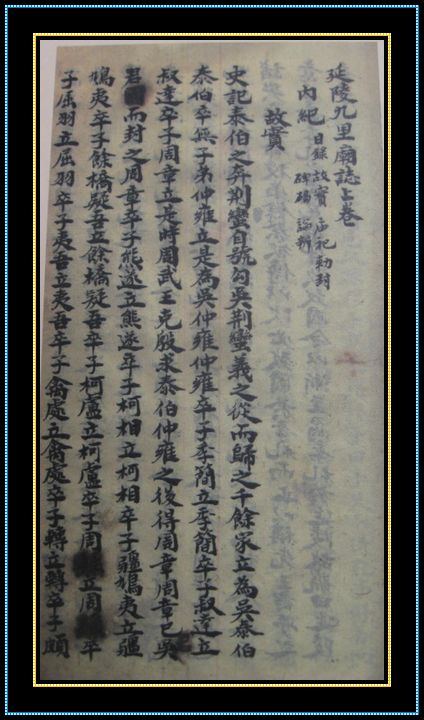 延陵九里廟誌上卷
內紀 目錄 故實 庙祀 勅封
碑碣 論辨
故實
史記泰伯之奔荆蠻自號勾吳荆蠻義之從而歸之千餘家立為吳泰伯
泰伯卒無子弟仲雍立是為吳仲雍仲雍卒子季簡立季簡卒子叔達立
叔達卒子周章立是時周武王克殷求泰伯仲雍之後得周章周章已吳
君而封之周章卒子熊遂立熊遂卒子柯相立柯相卒子疆鳩夷立疆
鳩夷卒子餘橋疑吾立餘橋疑吾卒子柯盧立柯盧卒子周立周卒
子屈羽立屈羽卒子夷吾立夷吾卒子禽處立禽處卒子轉立轉卒子頗